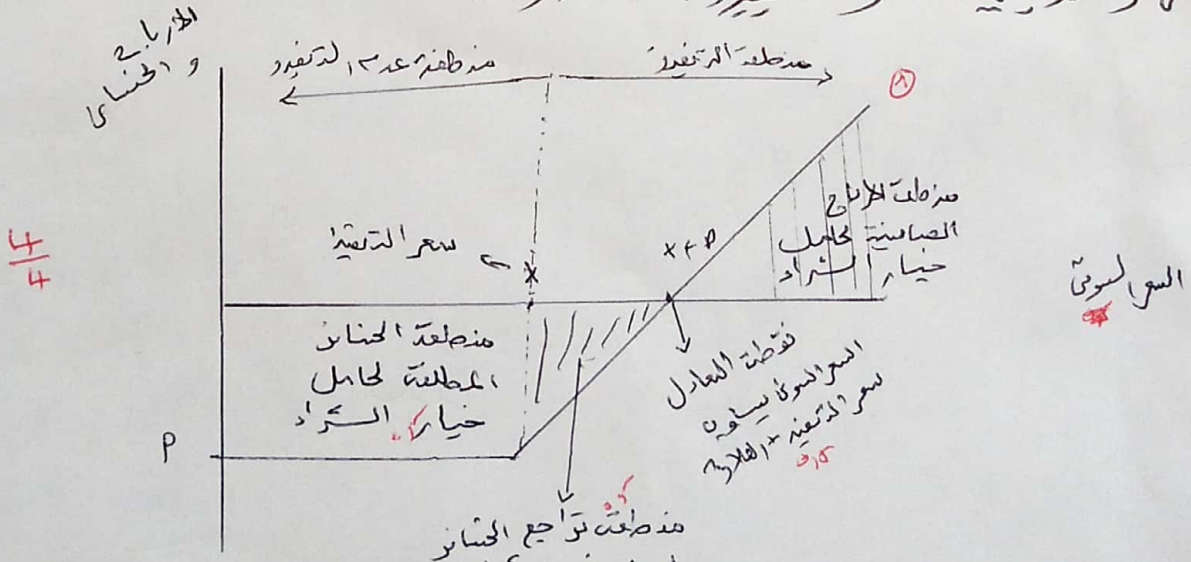 الأرباح
و الخسائر
منطقة عدم التنفيذ
منطقة التنفيذ
①
4/4
سعر التنفيذ
x
x+P
منطقة الأرباح
الصافية لحامل
خيار الشراء
السعر السوقي
منطقة الخسائر
المطلقة لحامل
خيار الشراء
P
نقطة التعادل
السعر السوقي يساوي
سعر التنفيذ + العلاوة
0,5
منطقة تراجع الخسائر